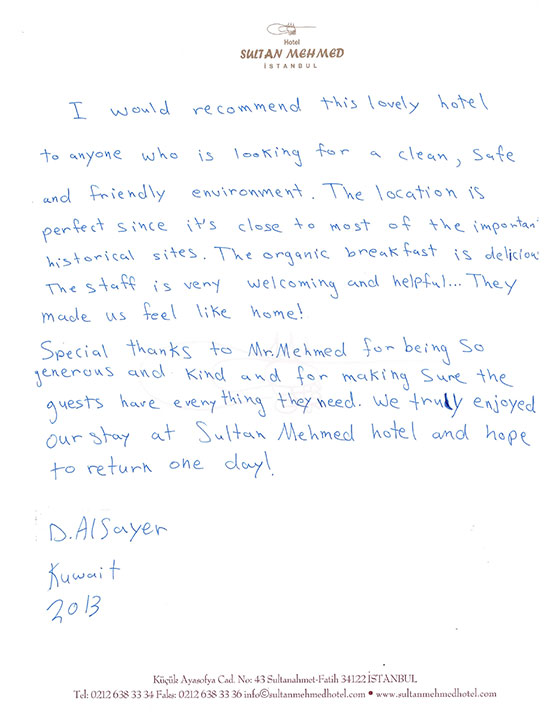 Hotel
SULTAN MEHMED
İSTANBUL
I would recommend this lovely hotel
to anyone who is looking for a clean, safe
and friendly environment. The location is
perfect since it's close to most of the importan
historical sites. The organic breakfast is deliciou
The staff is very welcoming and helpful... They
made us feel like home!
Special thanks to Mr. Mehmed for being so
generous and kind and for making sure the
guests have everything they need. We truly enjoyed
our stay at Sultan Mehmed hotel and hope
to return one day!
D. AlSayer
Kuwait
2013
Küçük Ayasofya Cad. No: 43 Sultanahmet-Fatih 34122 İSTANBUL
Tel: 0212 638 33 34 Faks: 0212 638 33 36 info@sultanmehmedhotel.com • www.sultanmehmedhotel.com